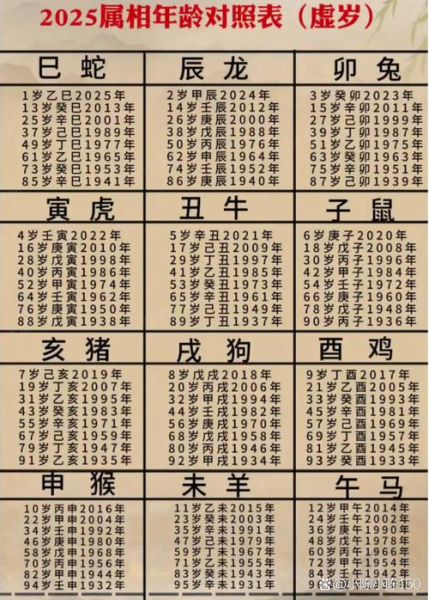 2025属相年龄对照表（虚岁）
巳 蛇
1岁乙巳2025年
13岁癸巳2013年
25岁辛巳2001年
37岁己巳1989年
49岁丁巳1977年
61岁乙巳1965年
73岁癸巳1953年
85岁辛巳1941年
辰 龙
2岁甲辰2024年
14岁壬辰2012年
26岁庚辰2000年
38岁戊辰1988年
50岁丙辰1976年
62岁甲辰1964年
74岁壬辰1952年
86岁庚辰1940年
卯 兔
3岁癸卯2023年
15岁辛卯2011年
27岁己卯1999年
39岁丁卯1987年
51岁乙卯1975年
63岁癸卯1963年
75岁辛卯1951年
87岁己卯1939年
寅 虎
4岁壬寅2022年
16岁庚寅2010年
28岁戊寅1998年
40岁丙寅1986年
52岁甲寅1974年
64岁壬寅1962年
76岁庚寅1950年
88岁戊寅1938年
丑 牛
5岁辛丑2021年
17岁己丑2009年
29岁丁丑1997年
41岁乙丑1985年
53岁癸丑1973年
65岁辛丑1961年
77岁己丑1949年
89岁丁丑1937年
子 鼠
6岁庚子2020年
18岁戊子2008年
30岁丙子1996年
42岁甲子1984年
54岁壬子1972年
66岁庚子1960年
78岁戊子1948年
90岁丙子1936年
亥 猪
7岁己亥2019年
19岁丁亥2007年
31岁乙亥1995年
43岁癸亥1983年
55岁辛亥1971年
67岁己亥1959年
79岁丁亥1947年
91岁乙亥1935年
戌 狗
8岁戊戌2018年
20岁丙戌2006年
32岁甲戌1994年
44岁壬戌1982年
56岁庚戌1970年
68岁戊戌1958年
80岁丙戌1946年
92岁甲戌1934年
酉 鸡
9岁丁酉2017年
21岁乙酉2005年
33岁癸酉1993年
45岁辛酉1981年
57岁己酉1969年
69岁丁酉1957年
81岁乙酉1945年
93岁癸酉1933年
申 猴
10岁丙申2016年
22岁甲申2004年
34岁壬申1992年
46岁庚申1980年
58岁戊申1968年
70岁丙申1956年
82岁甲申1944年
94岁壬申1932年
未 羊
11岁乙未2015年
23岁癸未2003年
35岁辛未1991年
47岁己未1979年
59岁丁未1967年
71岁乙未1955年
83岁癸未1943年
95岁辛未1931年
午 马
12岁甲午2014年
24岁壬午2002年
36岁庚午1990年
48岁戊午1978年
60岁丙午1966年
72岁甲午1954年
84岁壬午1942年